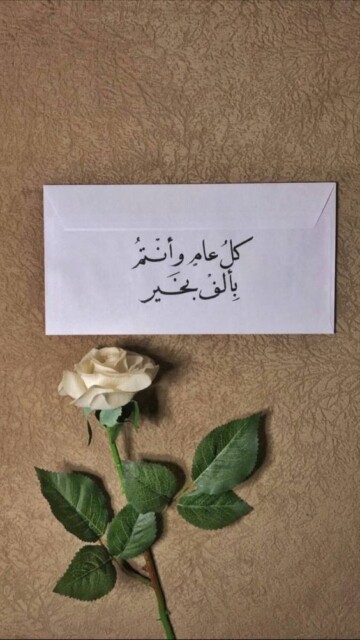 كلُ عامٍ وأنْتمُ
بِألفْ بخَير